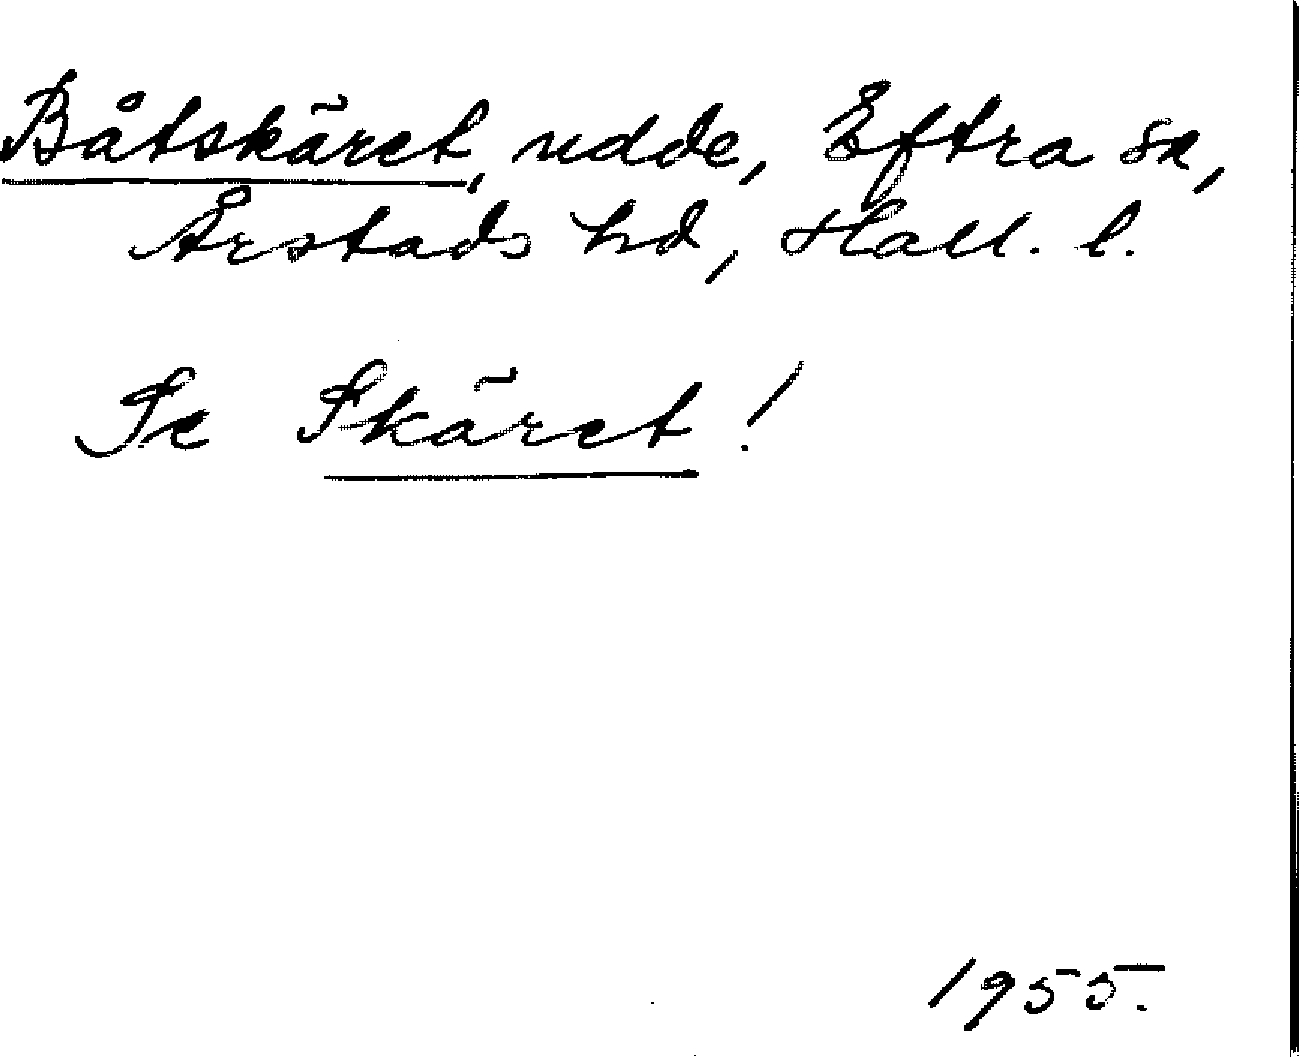 Båtskäret, udde, Eftra sn,
Årstads hd, Hall. l.
Se Skäret!
1955.